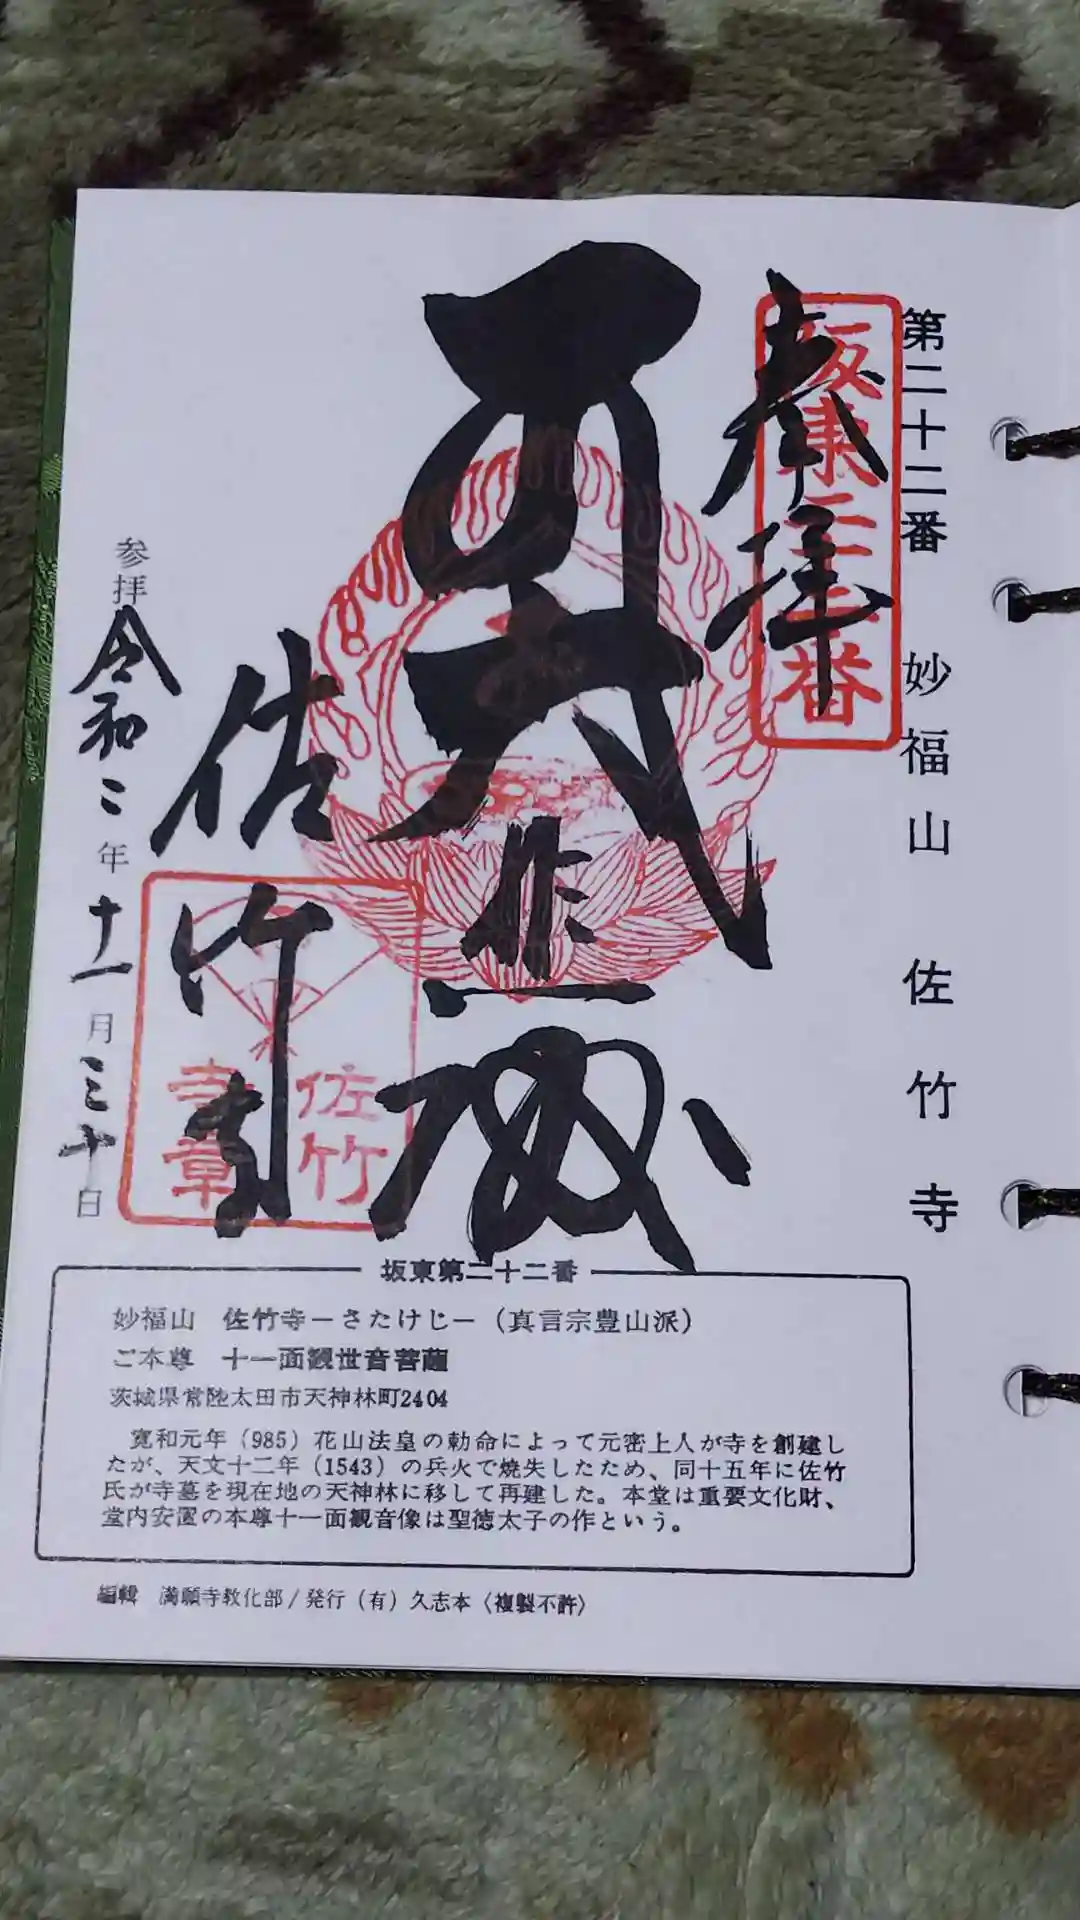 第二十二番 妙福山 佐竹寺
奉拝
坂東二十二番
佐竹寺
佐竹
寺章
参拝 令和二年十一月三十日
坂東第二十二番
妙福山 佐竹寺－さたけじ－（真言宗豊山派）
ご本尊 十一面観世音菩薩
茨城県常陸太田市天神林町2404
寛和元年（985）花山法皇の勅命によって元密上人が寺を創建し
たが、天文十二年（1543）の兵火で焼失したため、同十五年に佐竹
氏が寺墓を現在地の天神林に移して再建した。本堂は重要文化財、
堂内安置の本尊十一面観音像は聖徳太子の作という。
編輯 満願寺教化部/発行（有）久志本〈複製不許〉